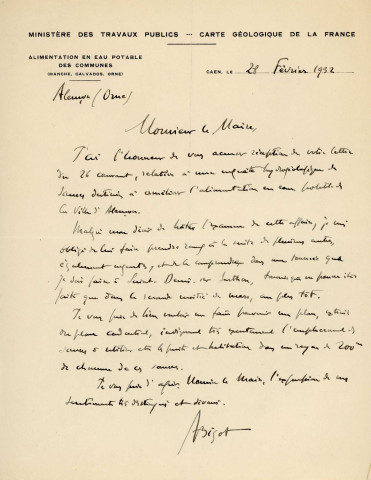 MINISTÈRE DES TRAVAUX PUBLICS — CARTE GÉOLOGIQUE DE LA FRANCE
ALIMENTATION EN EAU POTABLE
DES COMMUNES
(MANCHE, CALVADOS, ORNE)
CAEN, LE 28 Février 1932
Alençon (Orne)
Monsieur le Maire,
J'ai l'honneur de vous accuser réception de votre lettre
du 26 courant, relative à une enquête hydrogéologique de
sources destinées à améliorer l'alimentation en eau potable de
la Ville d'Alençon.
Malgré mon désir de hâter l'examen de cette affaire, je suis
obligé de lui faire prendre rang à la suite de plusieurs autres,
également urgentes, et de la comprendre dans une tournée que
je dois faire à Saint-Denis-sur-Sarthon, tournée qui ne pourra être
faite que dans la seconde moitié de mars, au plus tôt.
Je vous prie de bien vouloir me faire parvenir un plan, extrait
du plan cadastral, indiquant très exactement l'emplacement des
sources à utiliser et les puits et habitations dans un rayon de 200m
de chacune de ces sources.
Je vous prie d'agréer, Monsieur le Maire, l'expression de mes
sentiments très distingués et dévoués.
ABigot